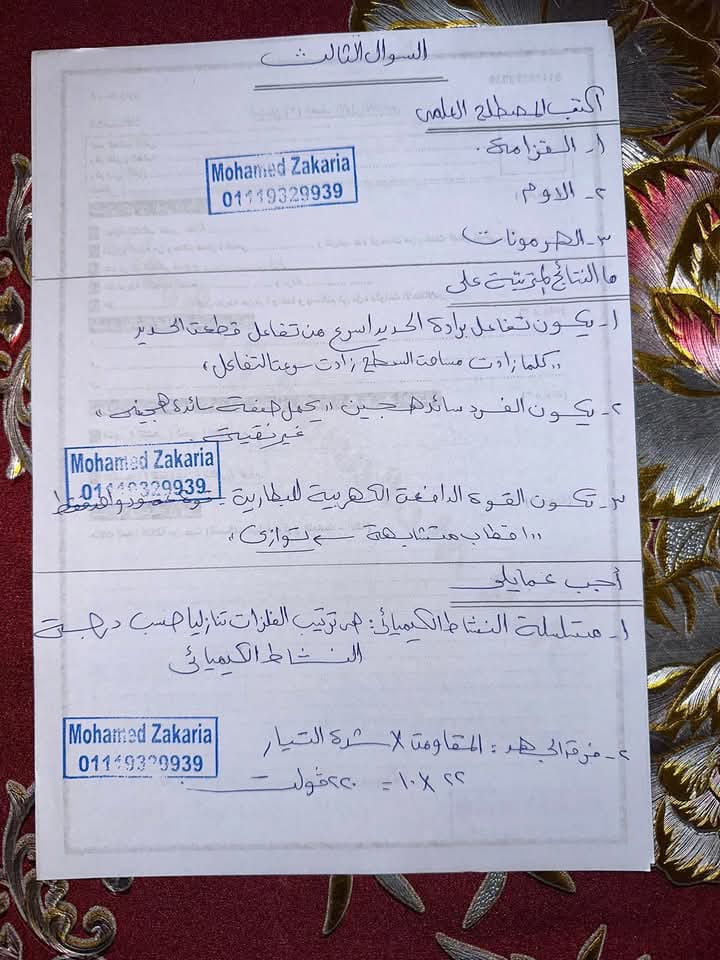 السؤال الثالث
اكتب المصطلح العلمى
١- القزامة.
Mohamed Zakaria
01119329939
٢- الاوم
٣- الهرمونات
ما النتائج المترتبة على
١- يكون تفاعل برادة الحديد اسرع من تفاعل قطعة الحديد
"كلما زادت مساحة السطح زادت سرعة التفاعل"
٢- يكون الفرد سائد هجين "يحمل صفة سائدة هجينة"
غير نقية
Mohamed Zakaria
01119329939
٣- تكون القوة الدافعة الكهربية للبطارية = قوة عمود واحد فقط
"اقطاب متشابهة توازى"
أجب عما يلى
١- متسلسلة النشاط الكيميائى: هى ترتيب الفلزات تنازليا حسب درجة
النشاط الكيميائى
٢- فرق الجهد = المقاومة × شدة التيار
Mohamed Zakaria
01119329939
٢٢ × ١٠ = ٢٢٠ فولت